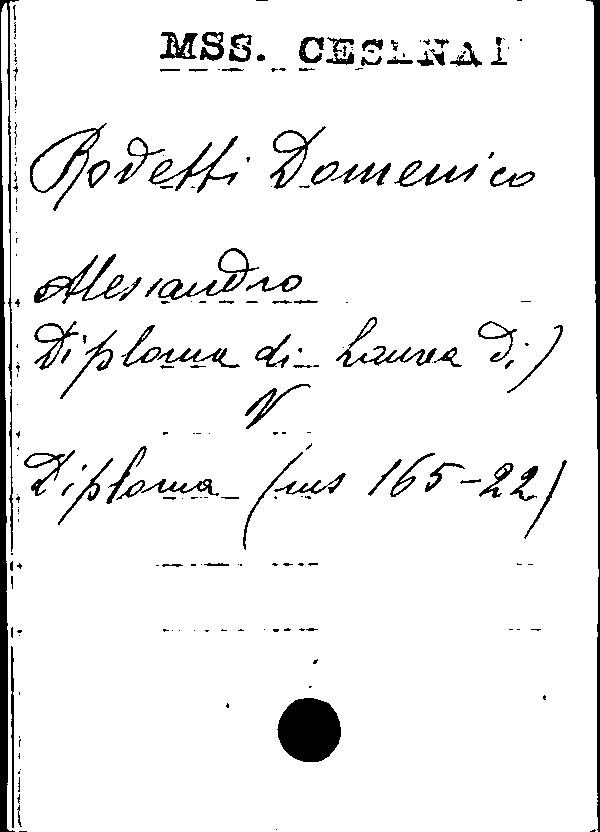 MSS. CESENATI
Rodetti Domenico
Alessandro
Diploma di Laurea di)
V
Diploma (ms 165-22)